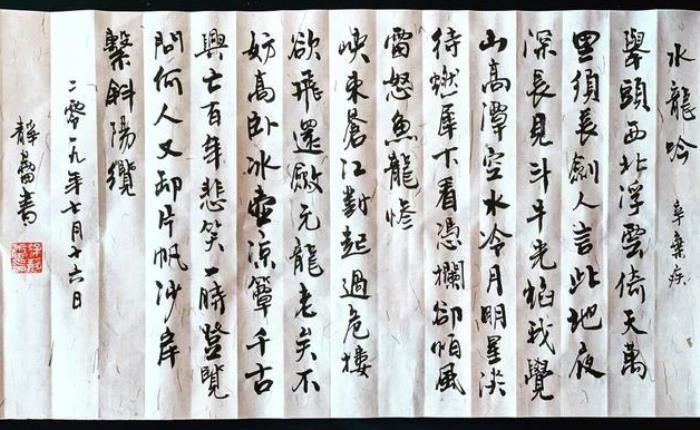 水龍吟 辛棄疾
舉頭西北浮雲倚天萬
里須長劍人言此地夜
深長見斗牛光焰我覺
山高潭空水冷月明星淡
待燃犀下看憑欄卻怕風
雷怒魚龍慘
峽束蒼江對起過危樓
欲飛還斂元龍老矣不
妨高臥冰壺涼簟千古
興亡百年悲笑一時登覽
問何人又卸片帆沙岸
繫斜陽纜
二零一九年七月十六日
靜書